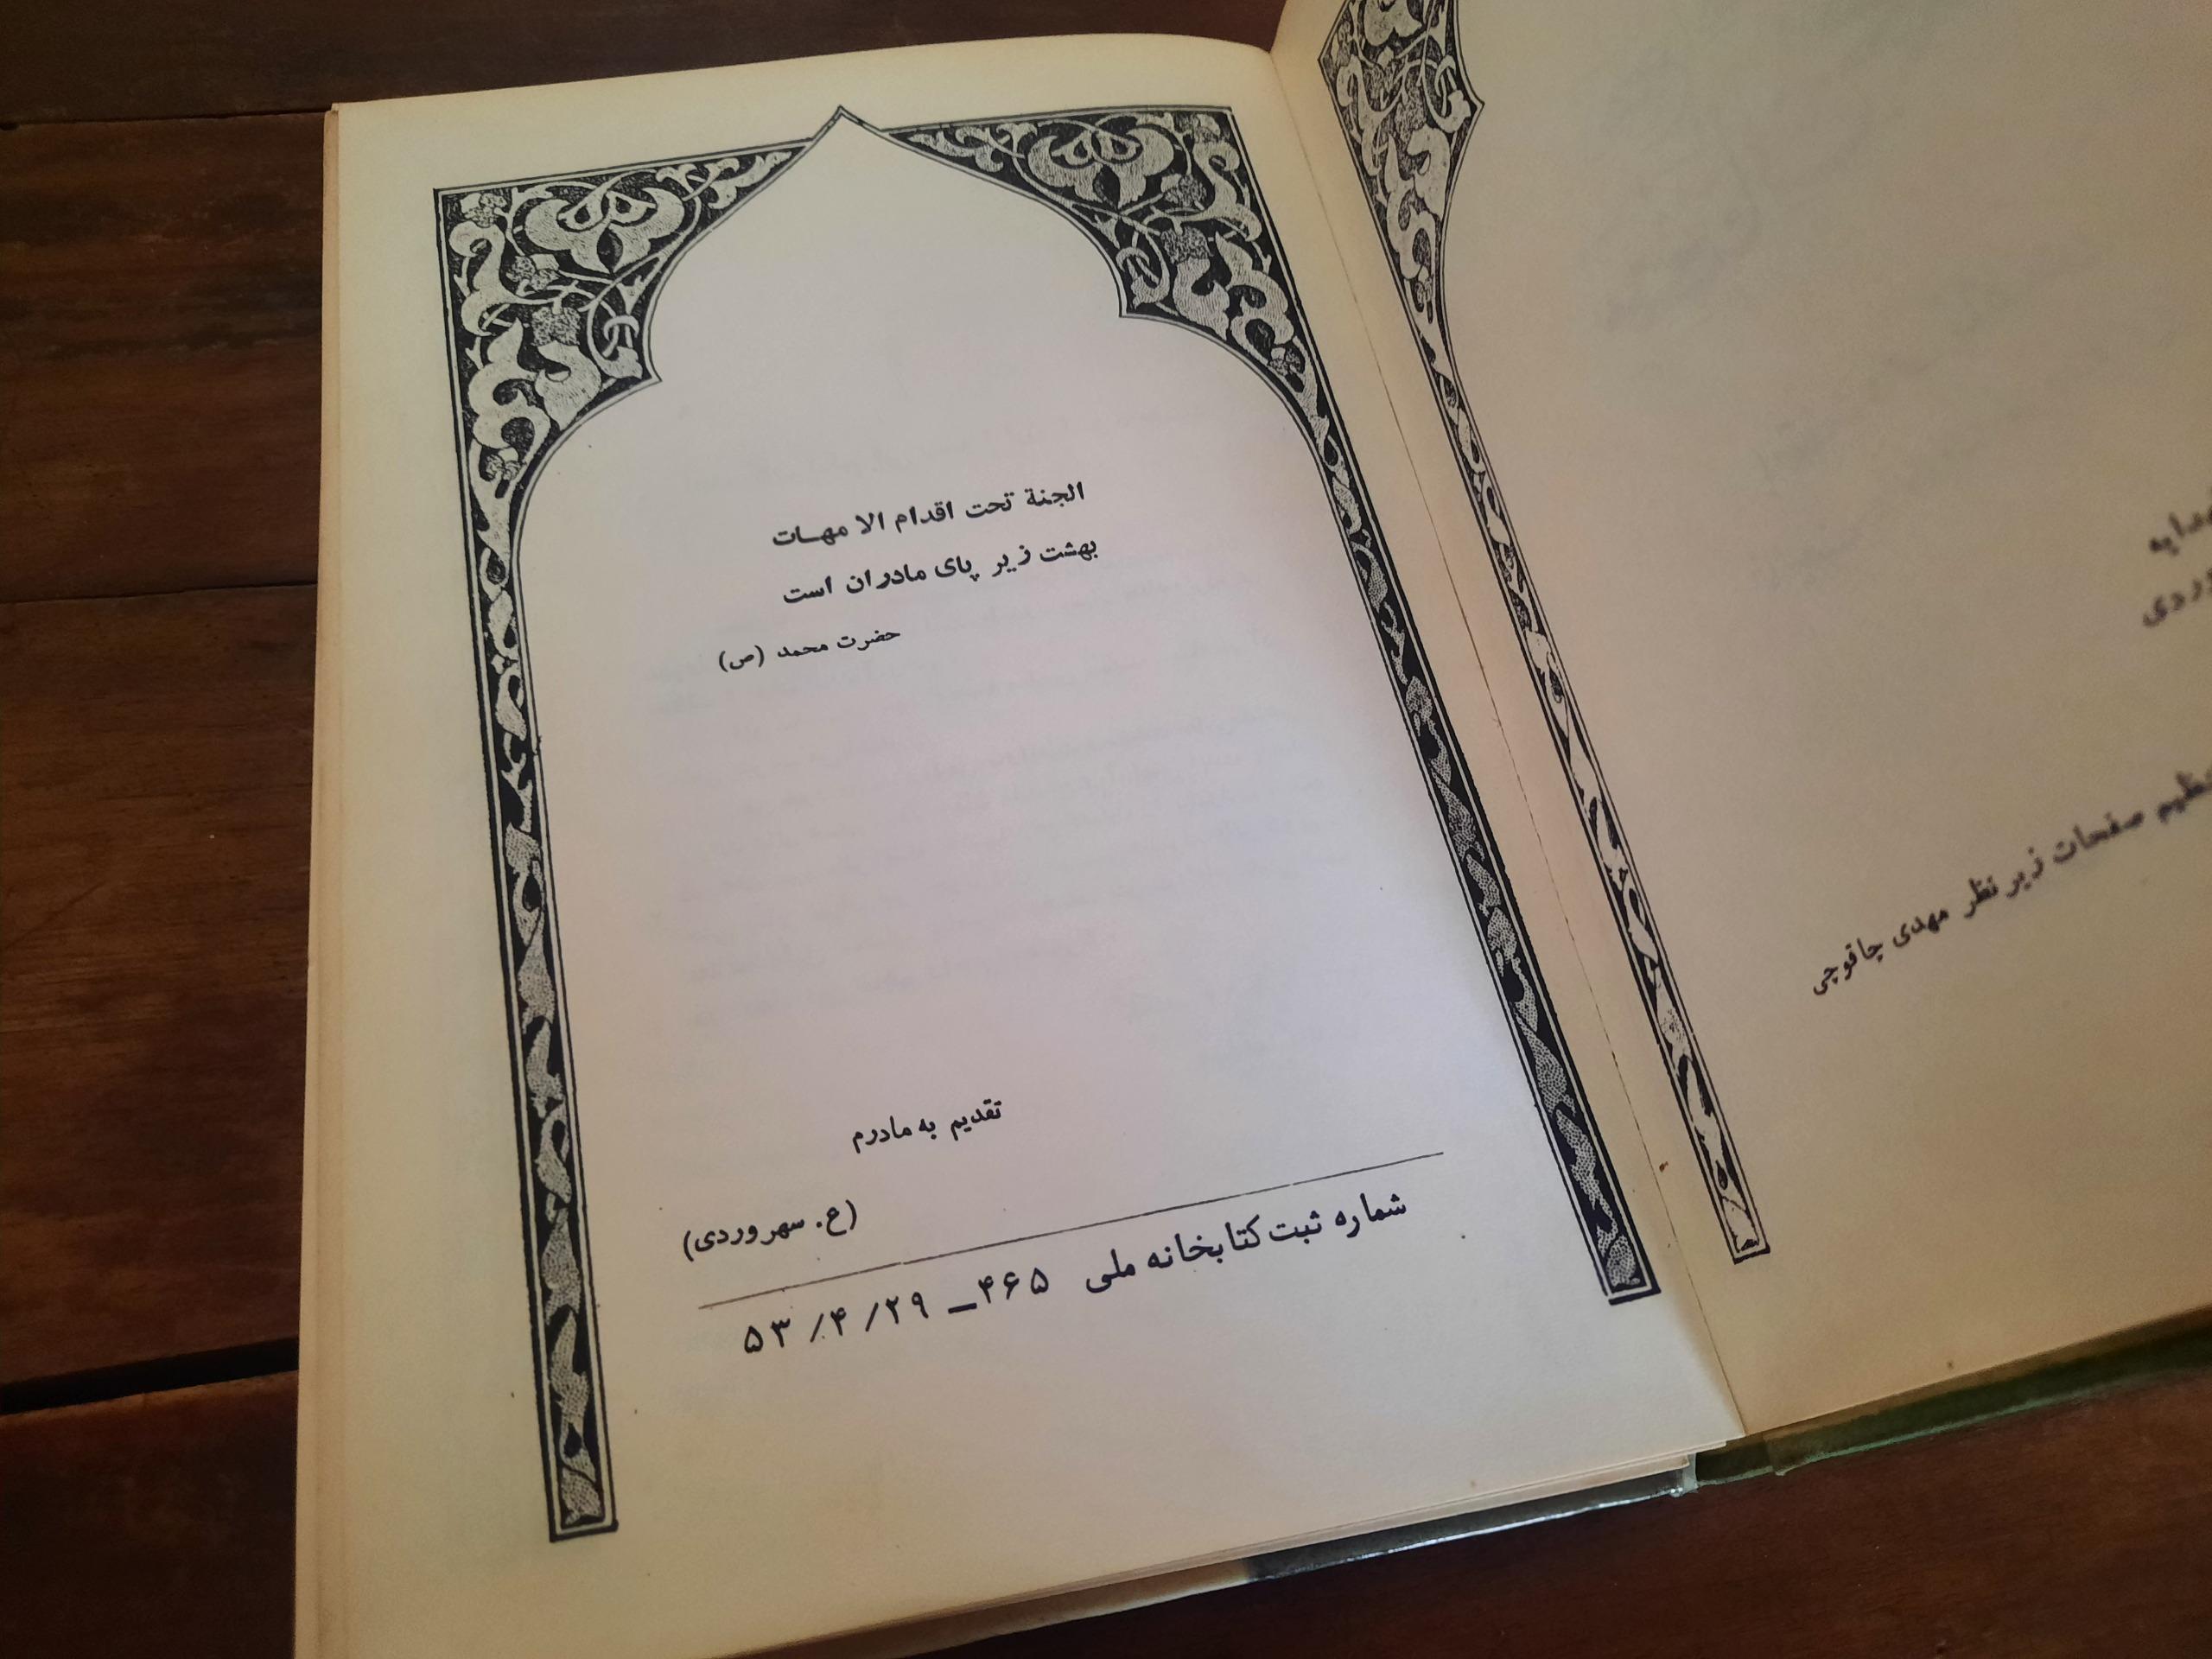 الجنة تحت اقدام الا مهات
بهشت زیر پای مادران است
حضرت محمد (ص)
تقدیم به مادرم
(ع. سهروردی)
شماره ثبت کتابخانه ملی ۴۶۵ــ ۵۳/۴/۲۹
صفحات زیر نظر مهدی چاقوچی